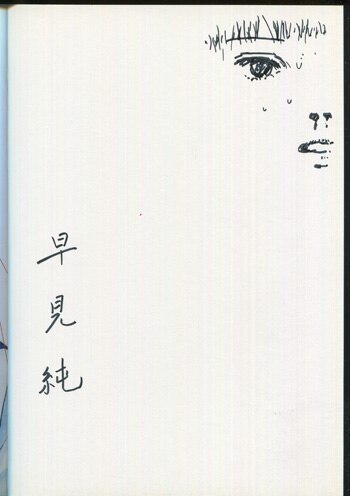 早見純